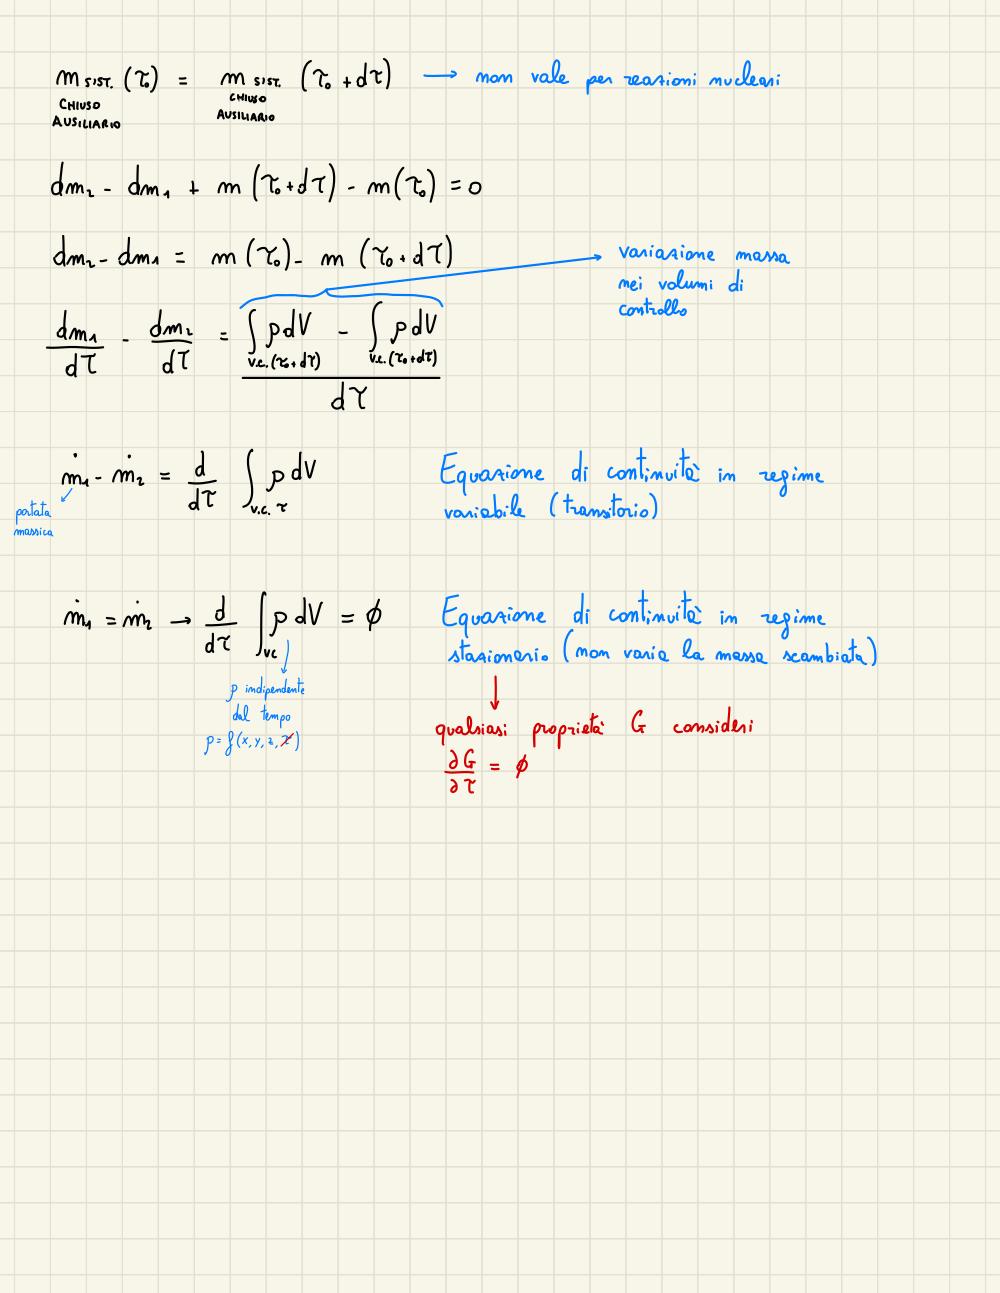 m SIST. CHIUSO AUSILIARIO (τ₀) = m SIST. CHIUSO AUSILIARIO (τ₀ + dτ) → non vale per reazioni nucleari
dm₂ - dm₁ + m (τ₀+dτ) - m(τ₀) = 0
dm₂ - dm₁ = m (τ₀) - m (τ₀+dτ)
variazione massa
nei volumi di
controllo
dm₁/dτ - dm₂/dτ = (∫ v.c.(τ₀+dτ) ρdV - ∫ v.c.(τ₀+dτ) ρdV)/dτ
ṁ₁ - ṁ₂ = d/dτ ∫ v.c. τ ρdV
portata
massica
Equazione di continuità in regime
variabile (transitorio)
ṁ₁ = ṁ₂ → d/dτ ∫ vc ρdV = ϕ
ρ indipendente
dal tempo
ρ = f(x, y, z, τ)
Equazione di continuità in regime
stazionario (non varia la massa scambiata)
↓
qualsiasi proprietà G consideri
∂G/∂τ = ϕ